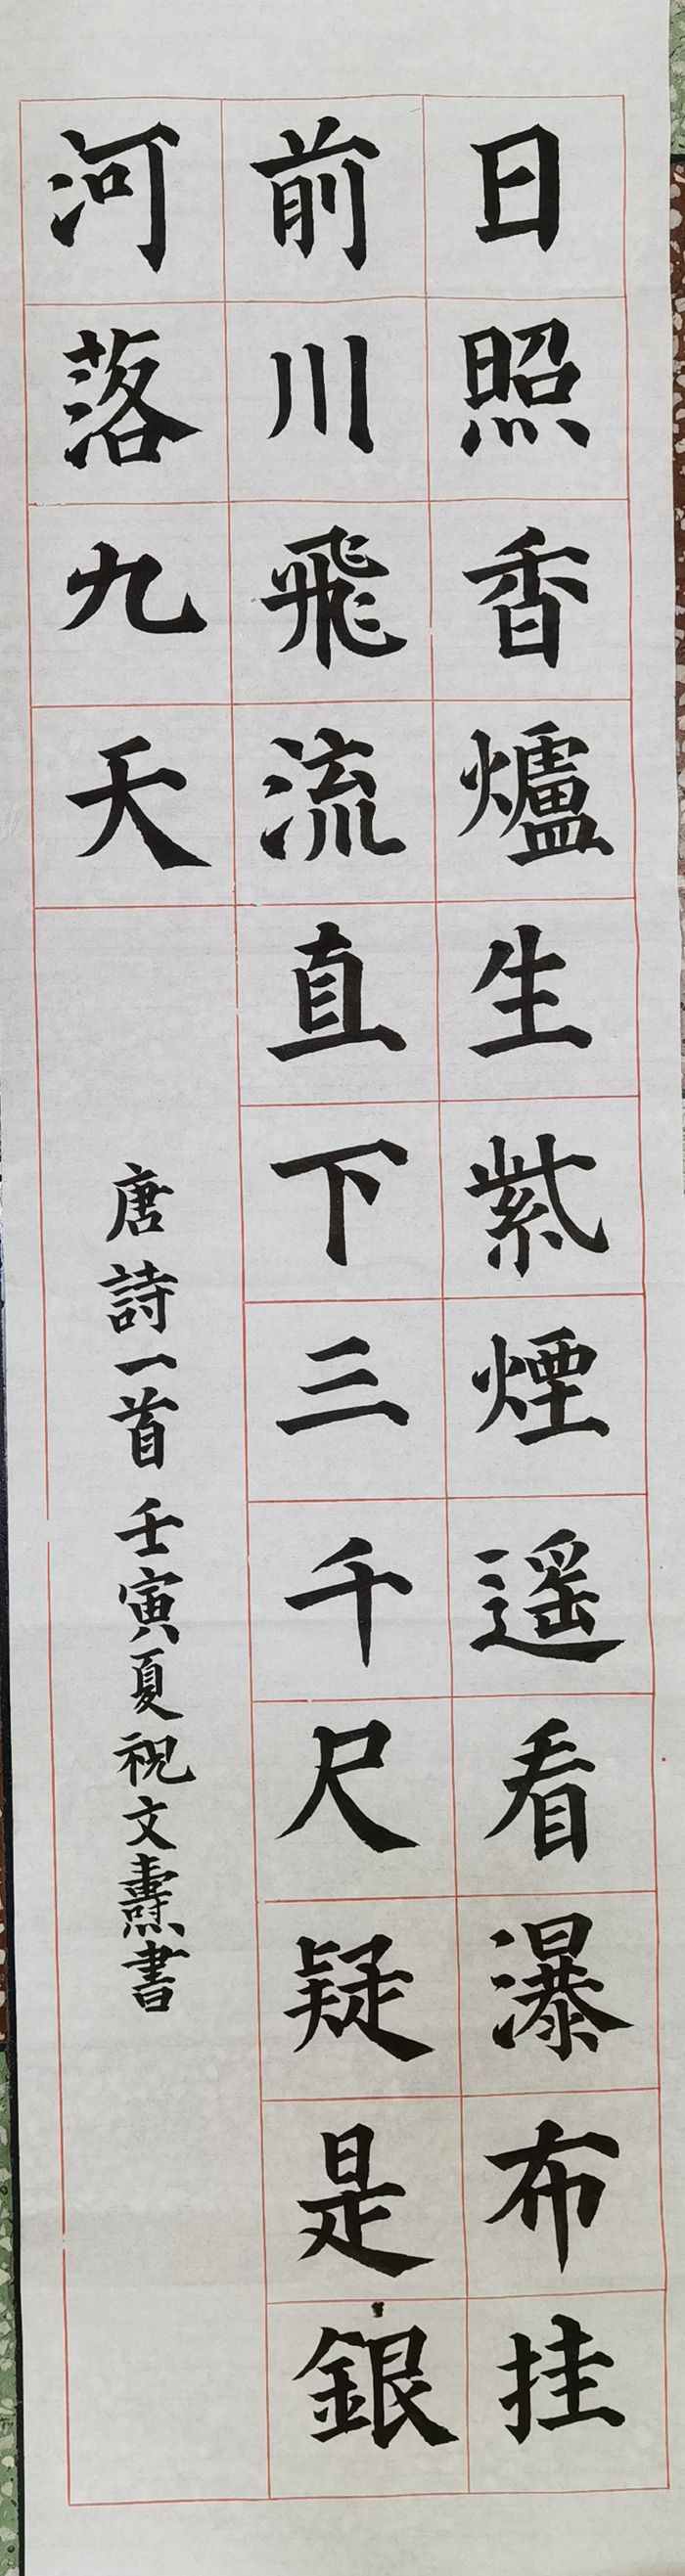 日照香爐生紫煙遥看瀑布挂
前川飛流直下三千尺疑是銀
河落九天
唐詩一首 壬寅夏祝文燾書